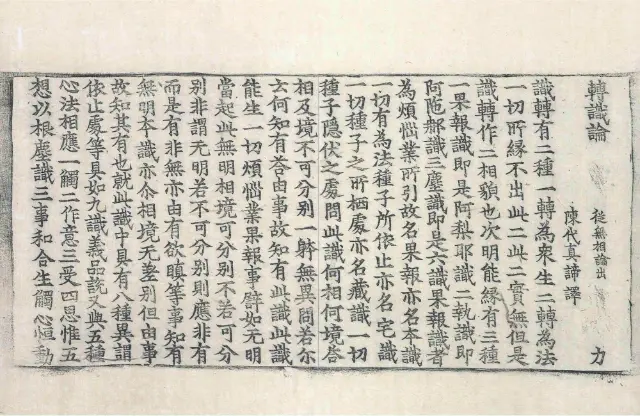 轉識論 從無相論出 力
陳代真諦譯
識轉有二種一轉為衆生二轉為法
一切所緣不出此二此二實無但是
識轉作二相貌也次明能緣有三種
一果報識即是阿梨耶識二執識即
阿陁那識三塵識即是六識果報識者
為煩惱業所引故名果報亦名本識
一切有為法種子所依止亦名宅識
一切種子之所栖處亦名藏識一切
種子隱伏之處問此識何相何境荅
相及境不可分別一躰無異問若尒
云何知有荅由事故知有此識此識
能生一切煩惱業果報事譬如無明
當起此無明相境可分別不若可分
別非謂無明若不可分別則應非有
而是有非無亦由有欲瞋等事知有
無明本識亦尒相境无差別但由事
故知其有也就此識中具有八種異謂
依止處等具如九識義品說又與五種
心法相應一觸二作意三受四思惟五
想以根塵識三事和合生觸心恒動